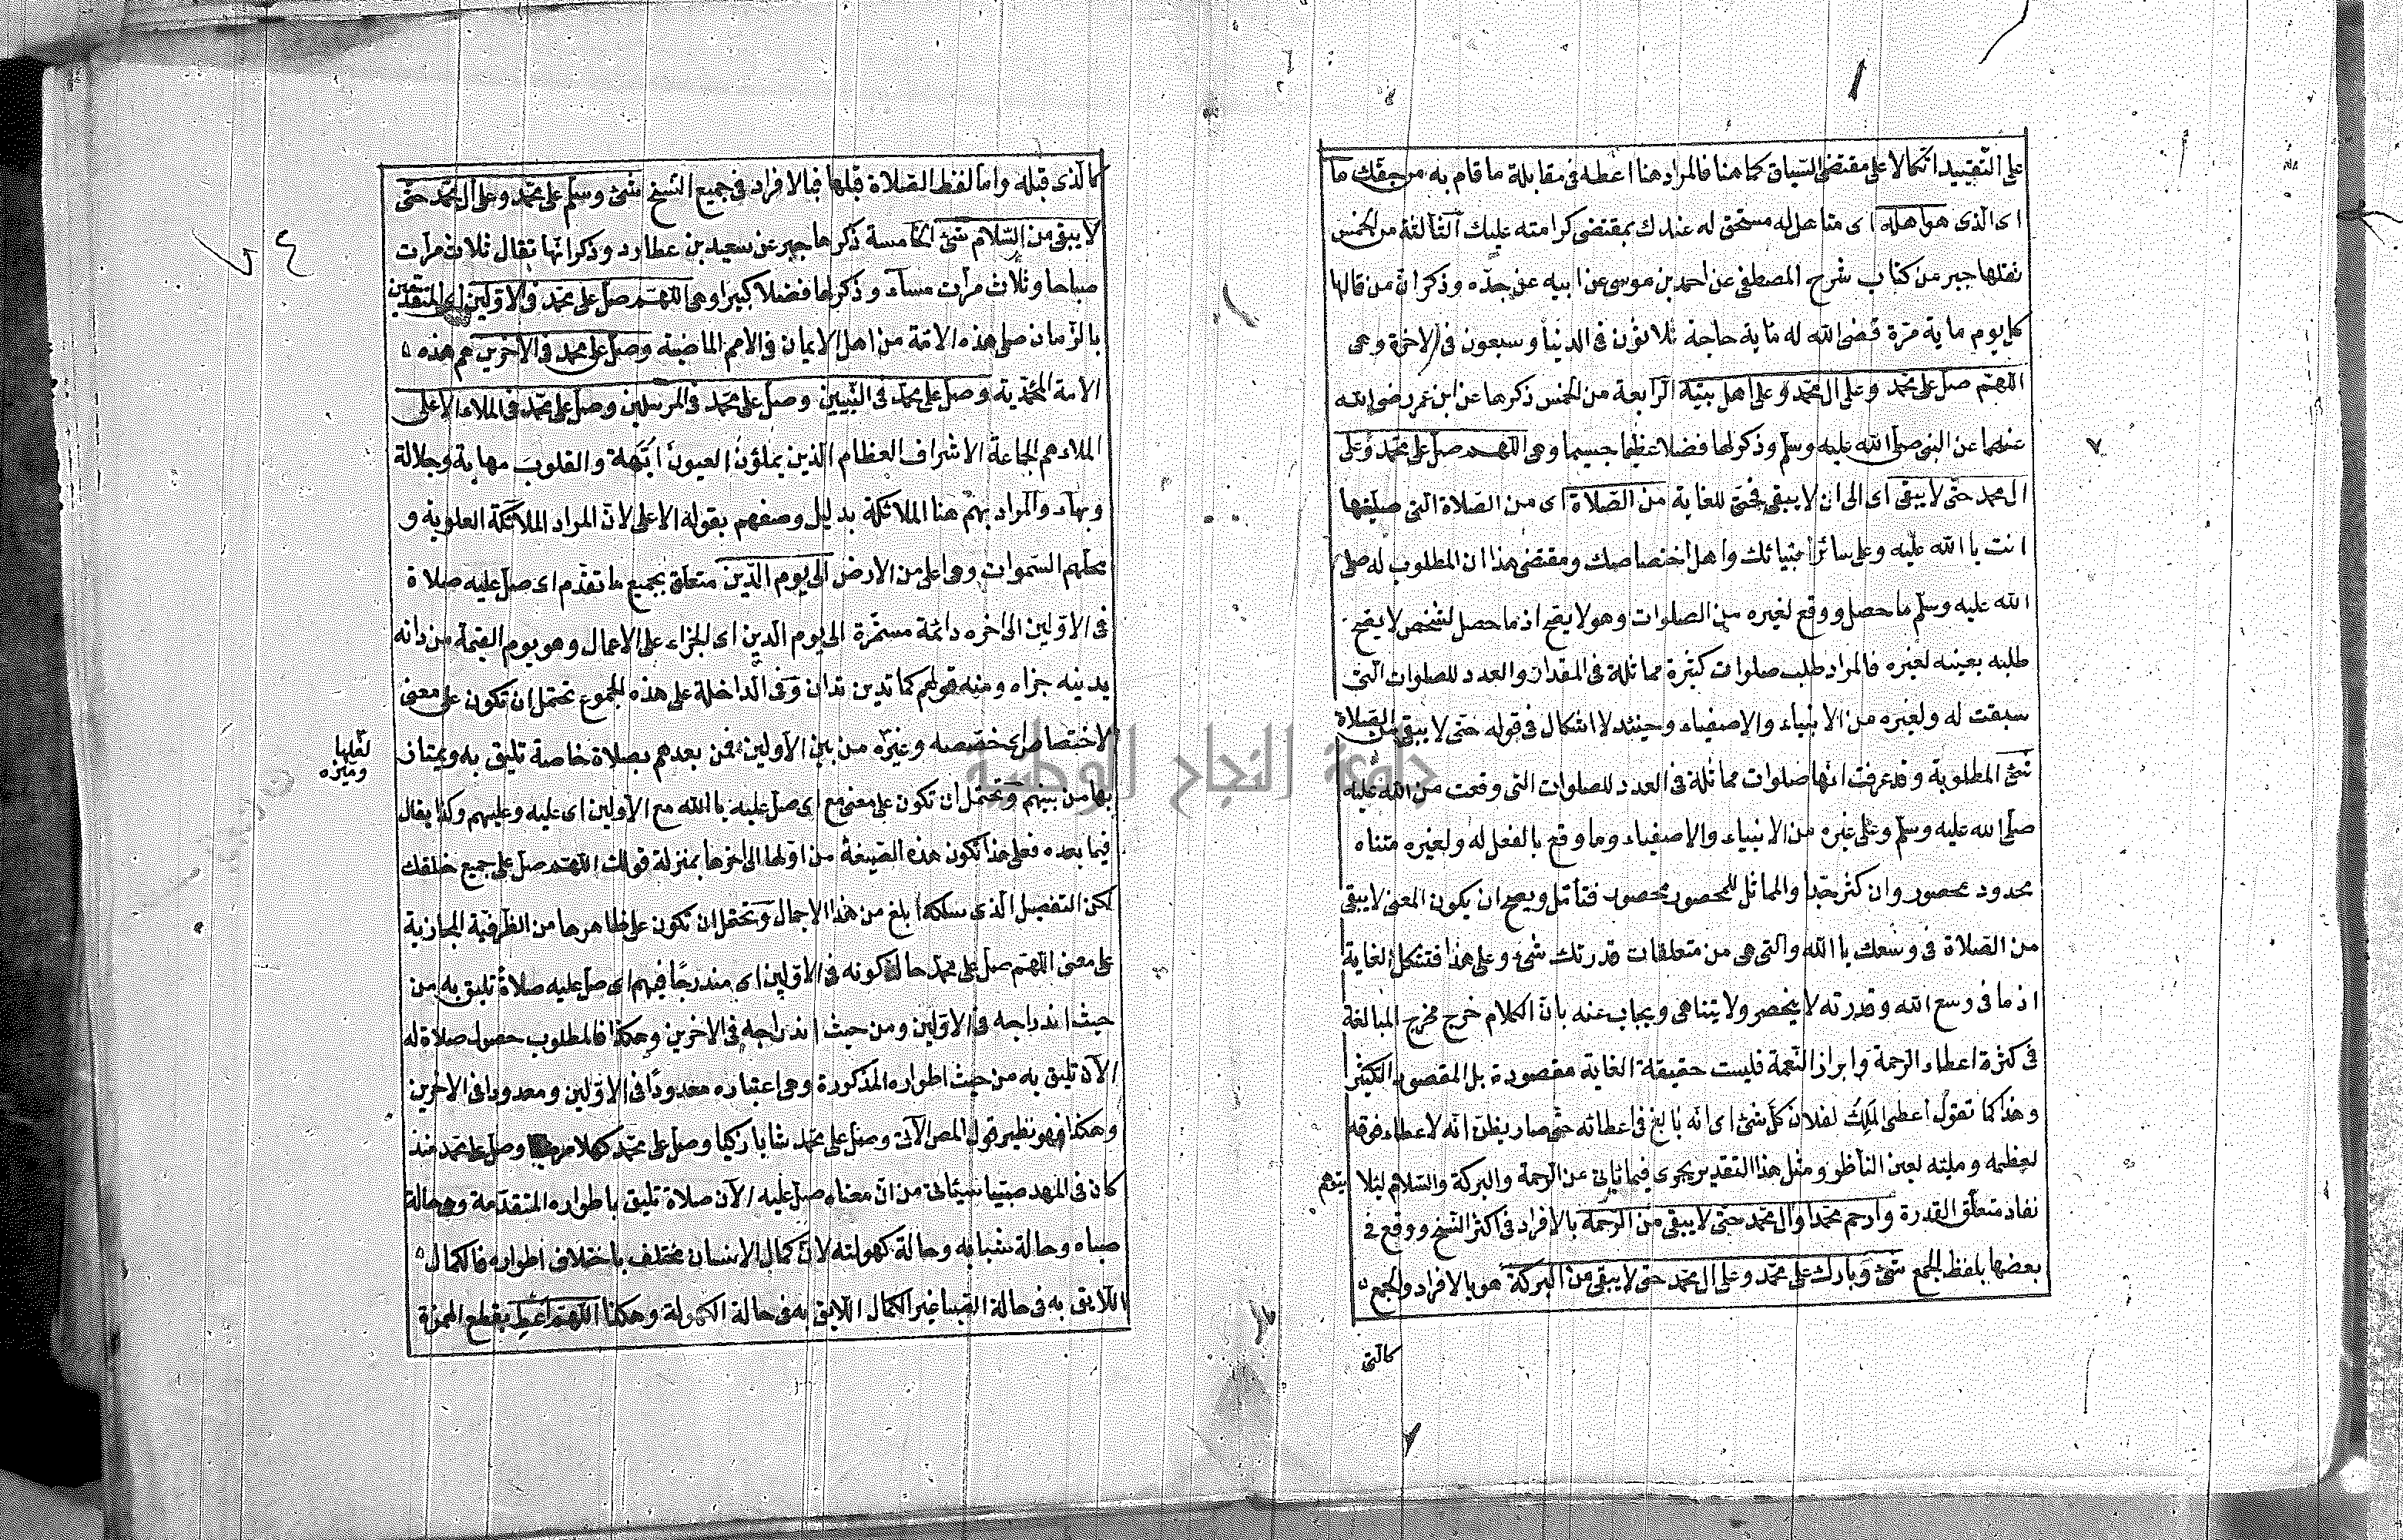 على التقييد اتكالا على مقتضى السياق كما هنا فالمراد هنا اعطه فى مقابلة ما قام به من حقك ما
اى الذى هو اهله اى متاهل له مستحق له عندك بمقتضى كرامته عليك الثالثة من الخمس
نقلها جبر عن كتاب شرح المصطفى عن احمد بن موسى عن ابيه عن جده وذكر ان من قالها
كل يوم ماية مرة قضى الله له ماية حاجة ثلاثون فى الدنيا وسبعون فى الاخرة وهى
اللهم صل على محمد وعلى ال محمد وعلى اهل بيته الرابعة من الخمس ذكرها عن ابن عمر رضى الله
عنهما عن النبى صلى الله عليه وسلم وذكر لها فضلا عظيما جسيما وهى اللهم صل على محمد وعلى
ال محمد حتى لا يبقى اى الى ان لا يبقى فحتى للغاية من الصلاة اى من الصلاة التى صليتها
انت يا الله عليه وعلى سائر انبيائك واهل اختصاصك ومقتضى هذا ان المطلوب له صلى
الله عليه وسلم ما حصل ووقع لغيره من الصلوات وهو لا يصح اذ ما حصل لشخص لا يصح
طلبه بعينه لغيره فالمراد طلب صلوات كثيرة مماثلة فى المقدار والعدد للصلوات التى
سبقت له ولغيره من الانبياء والاصفياء وحينئذ لا اشكال فى قوله حتى لا يبقى من الصلاة
شئ المطلوبة وقد عرفت انها صلوات مماثلة فى العدد للصلوات التى وقعت من الله عليه
صلى الله عليه وسلم وعلى غيره من الانبياء والاصفياء وما وقع بالفعل له ولغيره متناه
محدود محصور وان كثر جدا والمماثل للمحصور محصور فتأمل ويصح ان يكون المعنى لا يبقى
من الصلاة فى وسعك يا الله والتى هى من متعلقات قدرتك شئ وعلى هذا فتشكل الغاية
اذ ما فى وسع الله وقدرته لا ينحصر ولا يتناهى ويجاب عنه بان الكلام خرج مخرج المبالغة
فى كثرة اعطاء الرحمة وابراز النعمة فليست حقيقة الغاية مقصودة بل المقصود التكثير
وهذا كما تقول اعطى الملك لفلان كل شئ اى انه بالغ فى اعطائه حتى صار يظن انه لا عطاء فوقه
لعظمه وملئه لعين الناظر ومثل هذا التقدير يجرى فيما ياتى عن الرحمة والبركة والسلام ليلا يتوهم
نفاد متعلق القدرة وارحم محمدا وال محمد حتى لا يبقى من الرحمة بالافراد فى اكثر النسخ ووقع فى
بعضها بلفظ الجمع شئ وبارك على محمد وعلى ال محمد حتى لا يبقى من البركة هو بالافراد والجمع
كالتى
كالذى قبله واما لفظ الصلاة قبلها فبالافراد فى جميع النسخ شئ وسلم على محمد وعلى ال محمد حتى
لا يبقى من السلام شئ الخامسة ذكرها جبر عن سعيد بن عطارد وذكر انها تقال ثلاث مرات
صباحا وثلاث مرات مساء وذكر لها فضلا كبيرا وهى اللهم صل على محمد فى الاولين اى المتقدمين
بالزمان صلى هذه الامة من اهل الايمان فى الامم الماضية وصل على محمد فى الاخرين هم هذه
الامة المحمدية وصل على محمد فى النبيين وصل على محمد فى المرسلين وصل على محمد فى الملاء الاعلى
الملاء هم الجماعة الاشراف العظام الذين يملؤن العيون ابهة والقلوب مهابة وجلالة
وبهاء والمراد بهم هنا الملائكة بدليل وصفهم بقوله الاعلى لان المراد الملائكة العلوية و
محلهم السموات وهى اعلى من الارض الى يوم الدين متعلق بجميع ما تقدم اى صل عليه صلاة
فى الاولين الى اخره دائمة مستمرة الى يوم الدين اى الجزاء على الاعمال وهو يوم القيمة من دانه
يدينه جزاه ومنه قولهم كما تدين تدان وفى الداخلة على هذه الجموع تحتمل ان تكون على معنى
الاختصاص اى خصصه وغيره من بين الاولين فمن بعدهم بصلاة خاصة تليق به ويمتاز
لعلها
وميزه
بها من بينهم وتحتمل ان تكون على معنى مع اى صل عليه يا الله مع الاولين اى عليه وعليهم وكذا يقال
فيما بعده فعلى هذا تكون هذه الصيغة من اولها الى اخرها بمنزلة قولك اللهم صل على جميع خلقك
لكن التفصيل الذى سلكه ابلغ من هذا الاجمال وتحتمل ان تكون على ظاهرها من الظرفية المجازية
على معنى اللهم صل على محمد حالة كونه فى الاولين اى مندرجا فيهم اى صل عليه صلاة تليق به من
حيث اندراجه فى الاولين ومن حيث اندراجه فى الاخرين وهكذا فالمطلوب حصول صلاة له
الآن تليق به من حيث اطواره المذكورة وهى اعتباره معدودا فى الاولين ومعدودا فى الاخرين
وهكذا فهو نظير قول المص الآتى وصل على محمد شابا زكيا وصل على محمد كهلا مرضيا وصل على محمد منذ
كان فى المهد صبيا سياتى من ان معناه صل عليه الآن صلاة تليق باطواره المتقدمة وهى حالة
صباه وحالة شبابه وحالة كهولته لان كمال الانسان مختلف باختلاف اطواره فالكمال
اللايق به فى حالة الصبا غير الكمال اللايق به فى حالة الكهولة وهكذا اللهم اعط بقطع الهمزة
جامعة النجاح الوطنية